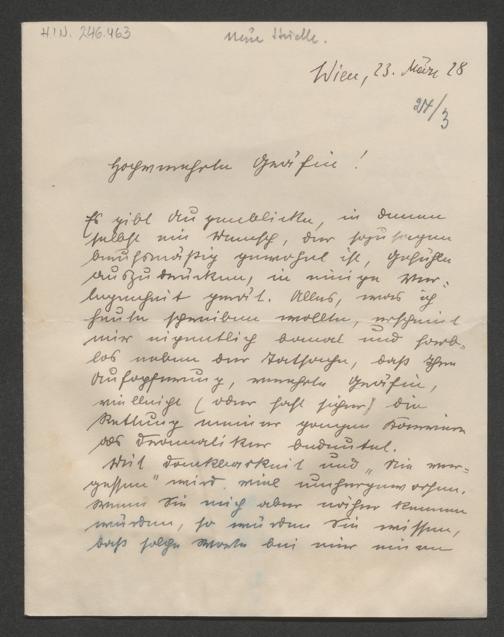 H.I.N. 246.463
neue Stücke.
Wien, 23. März 28
24/3
Hochverehrte Gräfin!
Es gibt Augenblicke, in denen
selbst ein Mensch, der sozusagen
berufsmäßig gewohnt ist, Gefühle
auszudrücken, in einige Ver-
legenheit gerät. Alles, was ich
heute schreiben wollte, erscheint
mir eigentlich banal und farb-
los neben der Tatsache, daß Ihre
Aufopferung, verehrte Gräfin,
vielleicht (oder fast sicher) die
Rettung meiner ganzen Karriere
als Dramatiker bedeutet.
Mit Dankbarkeit und „Nie ver-
gessen" wird viel umhergeworfen.
Wenn Sie mich aber näher kennen
würden, so würden Sie wissen,
daß solche Worte bei mir einen